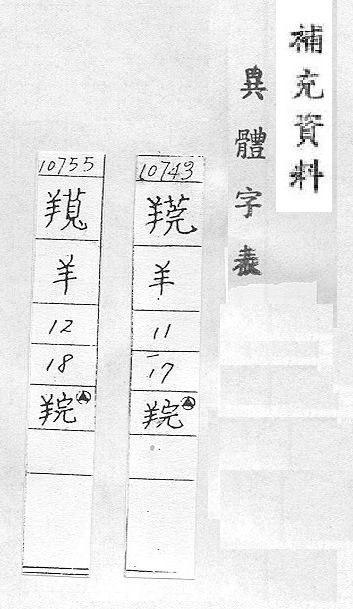 補充資料
異體字表
10743
羊
11
17
羦
10755
羊
12
18
羦